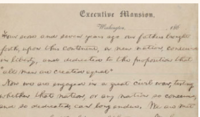 Executive Mansion.
Washington, 186
Four score and seven years ago our fathers brought
forth, upon this continent, a new nation, conceived
in liberty, and dedicated to the proposition that
"all men are created equal"
Now we are engaged in a great civil war, testing
whether that nation, or any nation so conceived,
and so dedicated, can long endure. We are met